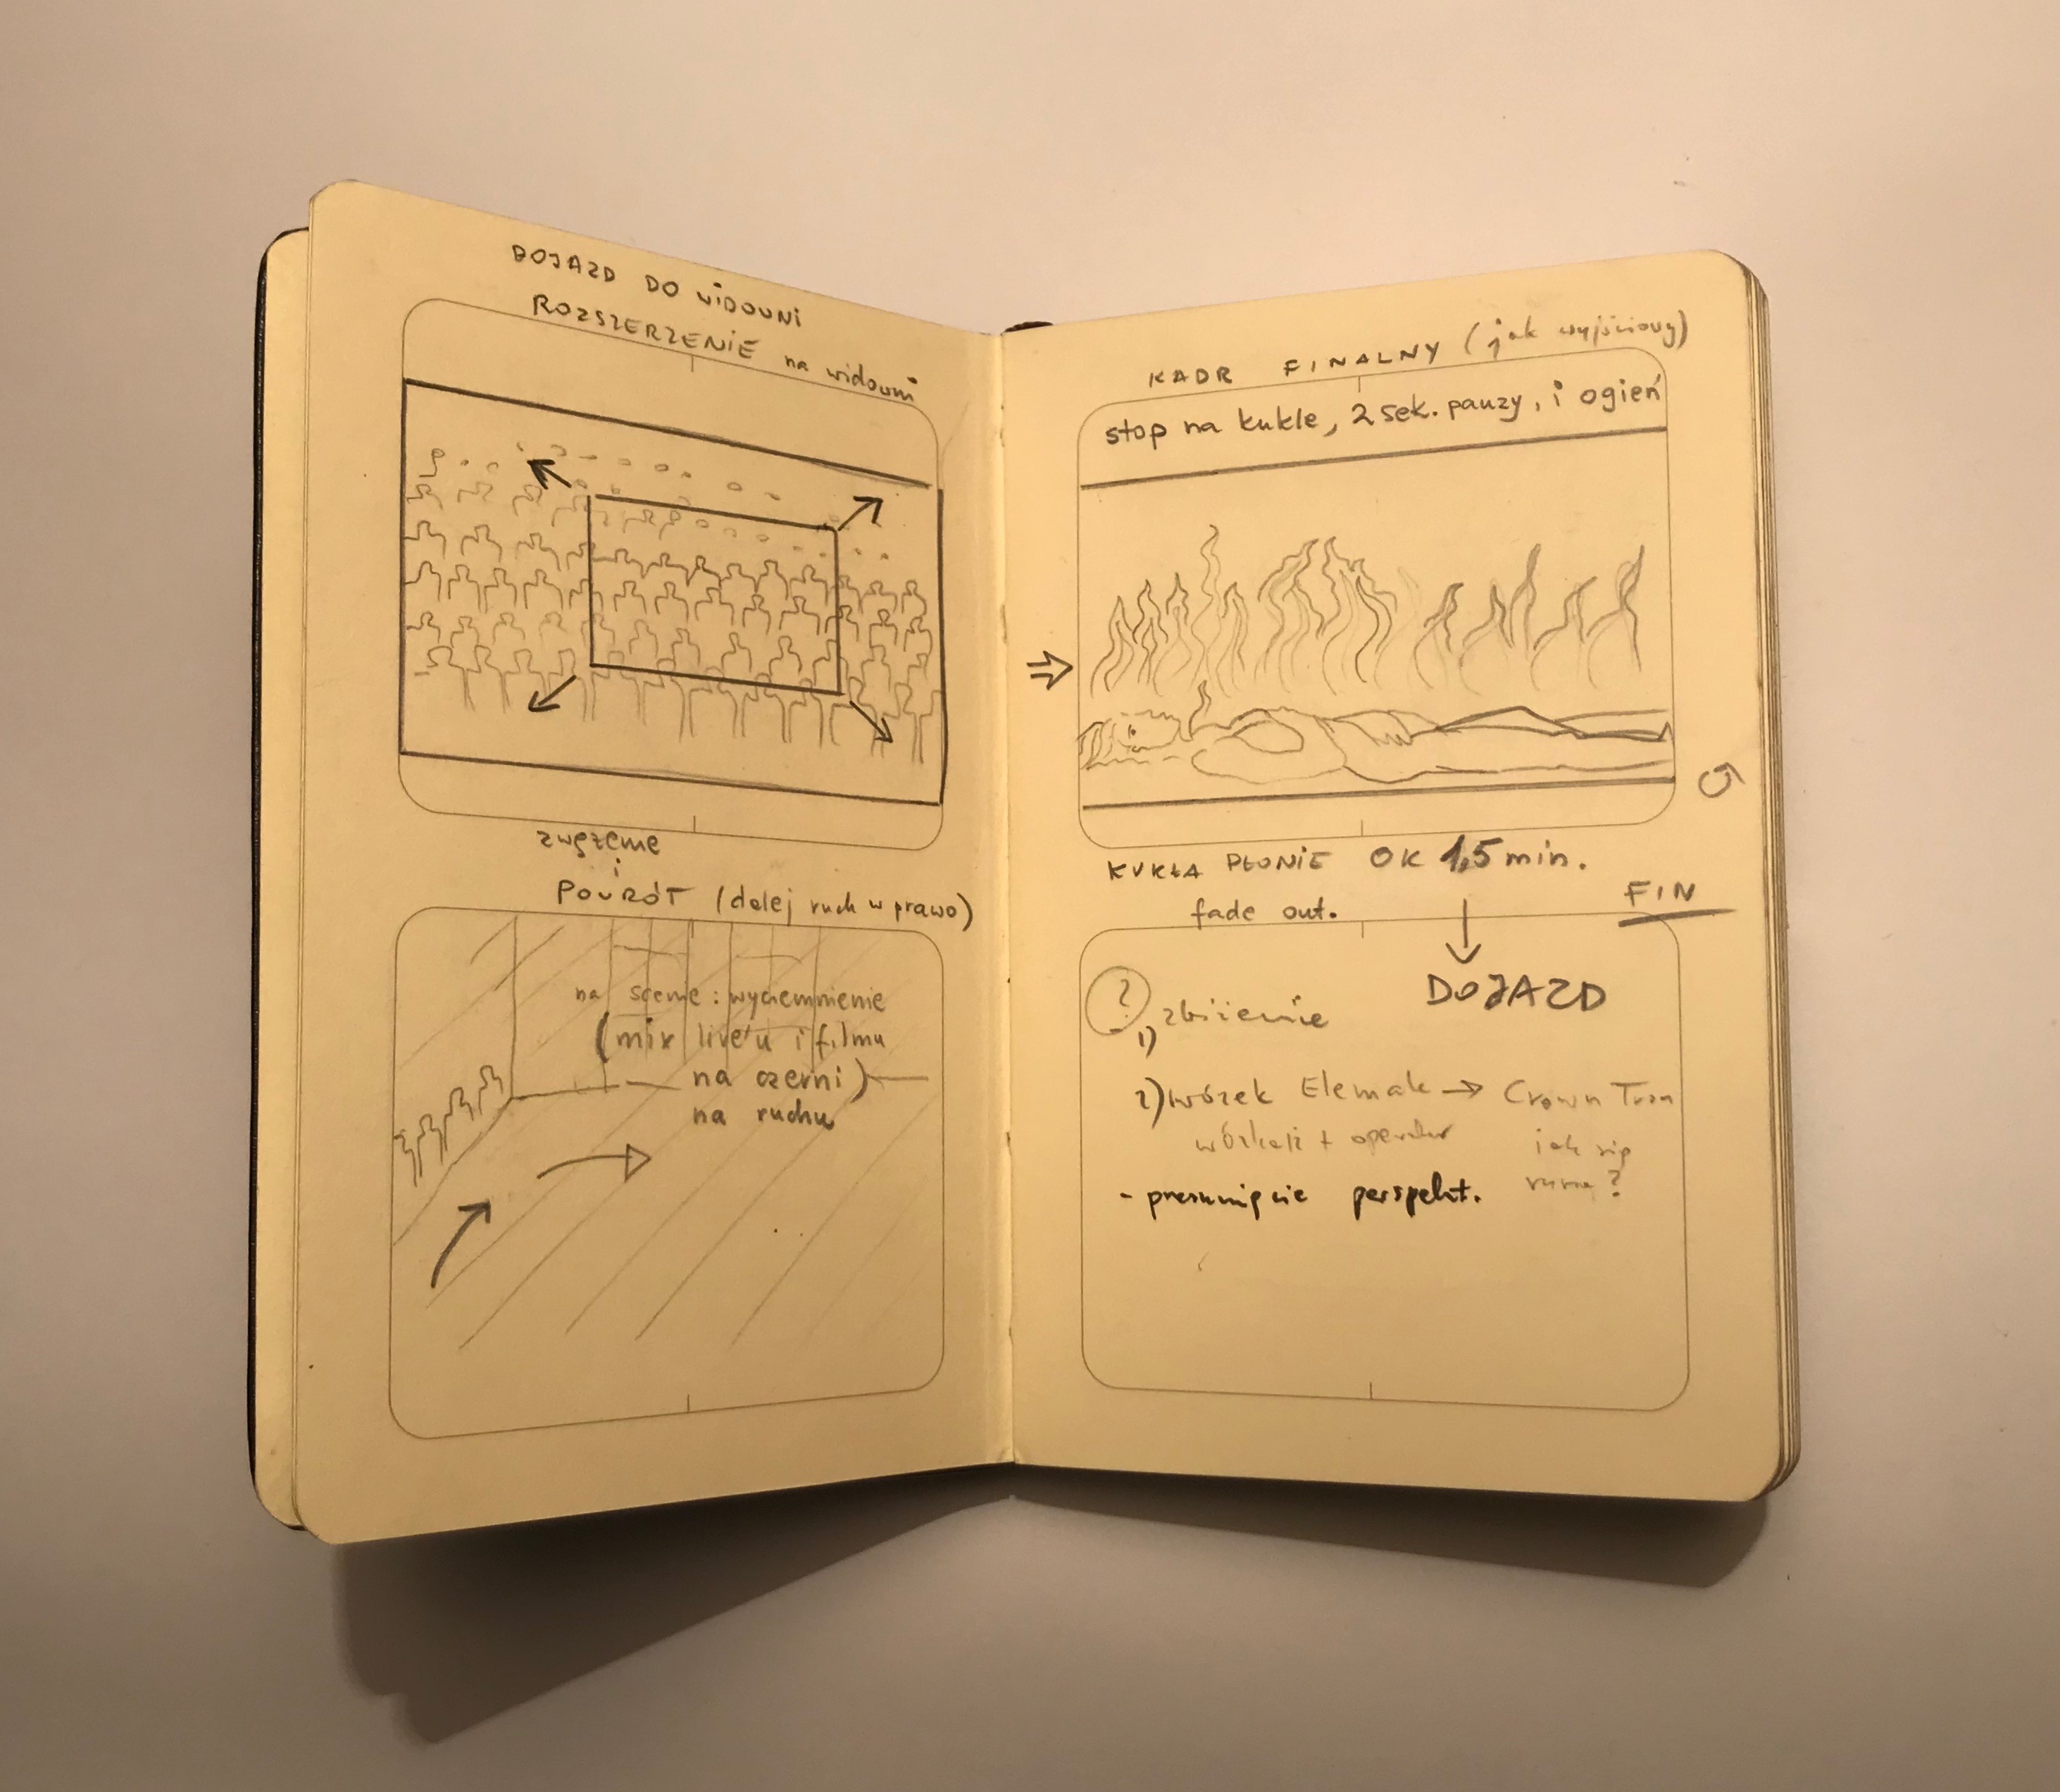 DOJAZD DO WIDOWNI
ROZSZERZENIE na widowni
zwężenie
i
POWRÓT (dalej ruch w prawo)
na scenie: wyciemnienie
(mix live'u i filmu
na czerni)
na ruchu
KADR FINALNY (jak wyjściowy)
stop na kukle, 2 sek. pauzy, i ogień
KUKŁA PŁONIE OK 1,5 min.
fade out.
FIN
DOJAZD
?
1) zbliżenie
2) wózek Elemak → Crown Tran
wózkarz + operator jak się
?
- przesunięcie perspekt.